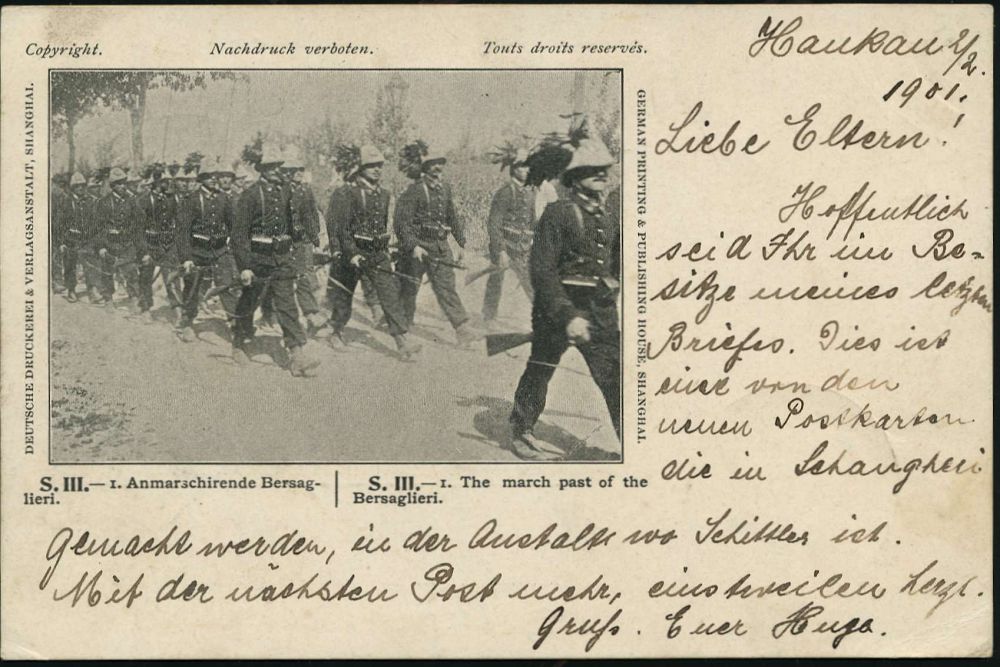 Copyright.
Nachdruck verboten.
Touts droits reservés.
DEUTSCHE DRUCKEREI & VERLAGSANSTALT, SHANGHAI.
GERMAN PRINTING & PUBLISHING HOUSE, SHANGHAI.
S. III.— 1. Anmarschirende Bersag-
lieri.
S. III.—1. The march past of the
Bersaglieri.
Hankau 2/2.
1901.
Liebe Eltern!
Hoffentlich
seid Ihr im Be-
sitze meines letzten
Briefes. Dies ist
eine von den
neuen Postkarten
die in Schanghai
gemacht werden, in der Anstalt wo Schittler ist.
Mit der nächsten Post mehr, einstweilen herzl.
Gruß. Euer Hugo.